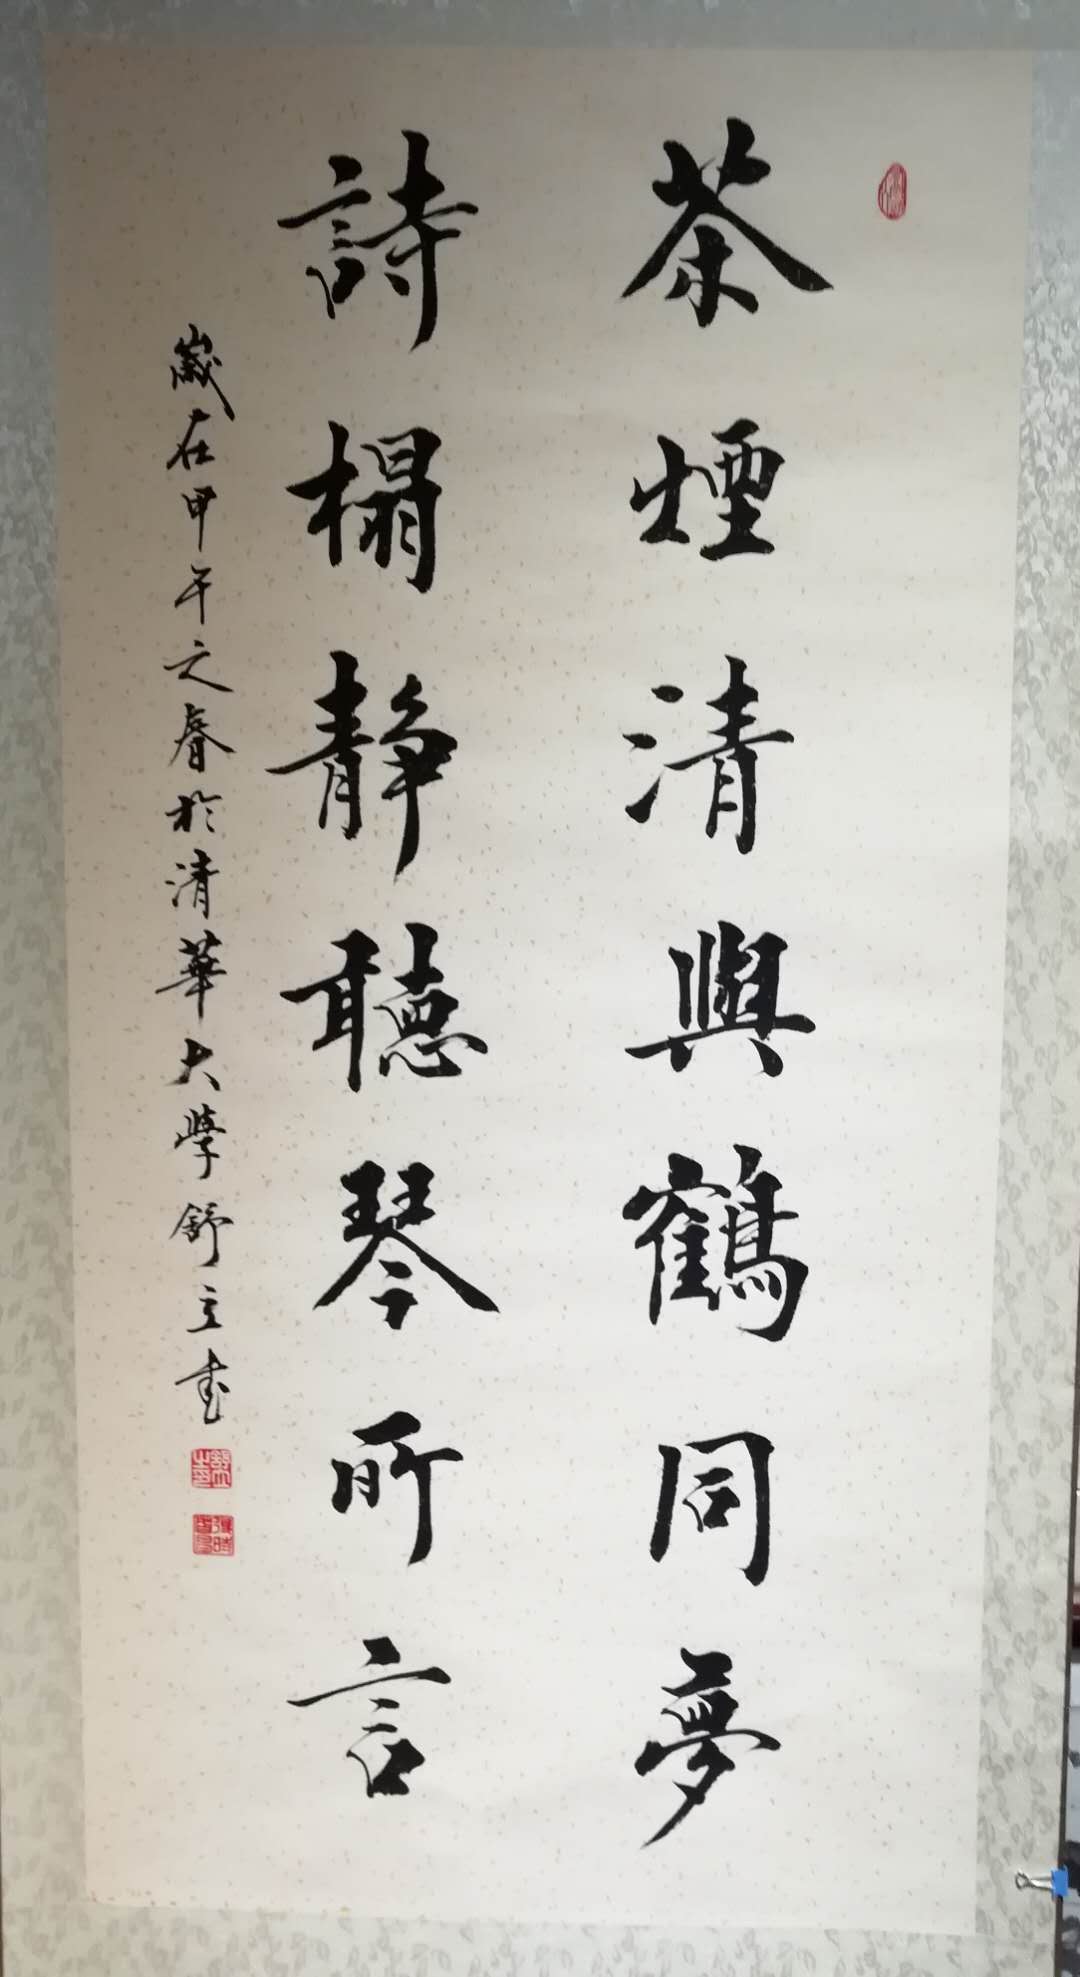 茶煙清與鶴同夢
詩榻靜聽琴所言
歲在甲午之春於清華大學舒立書